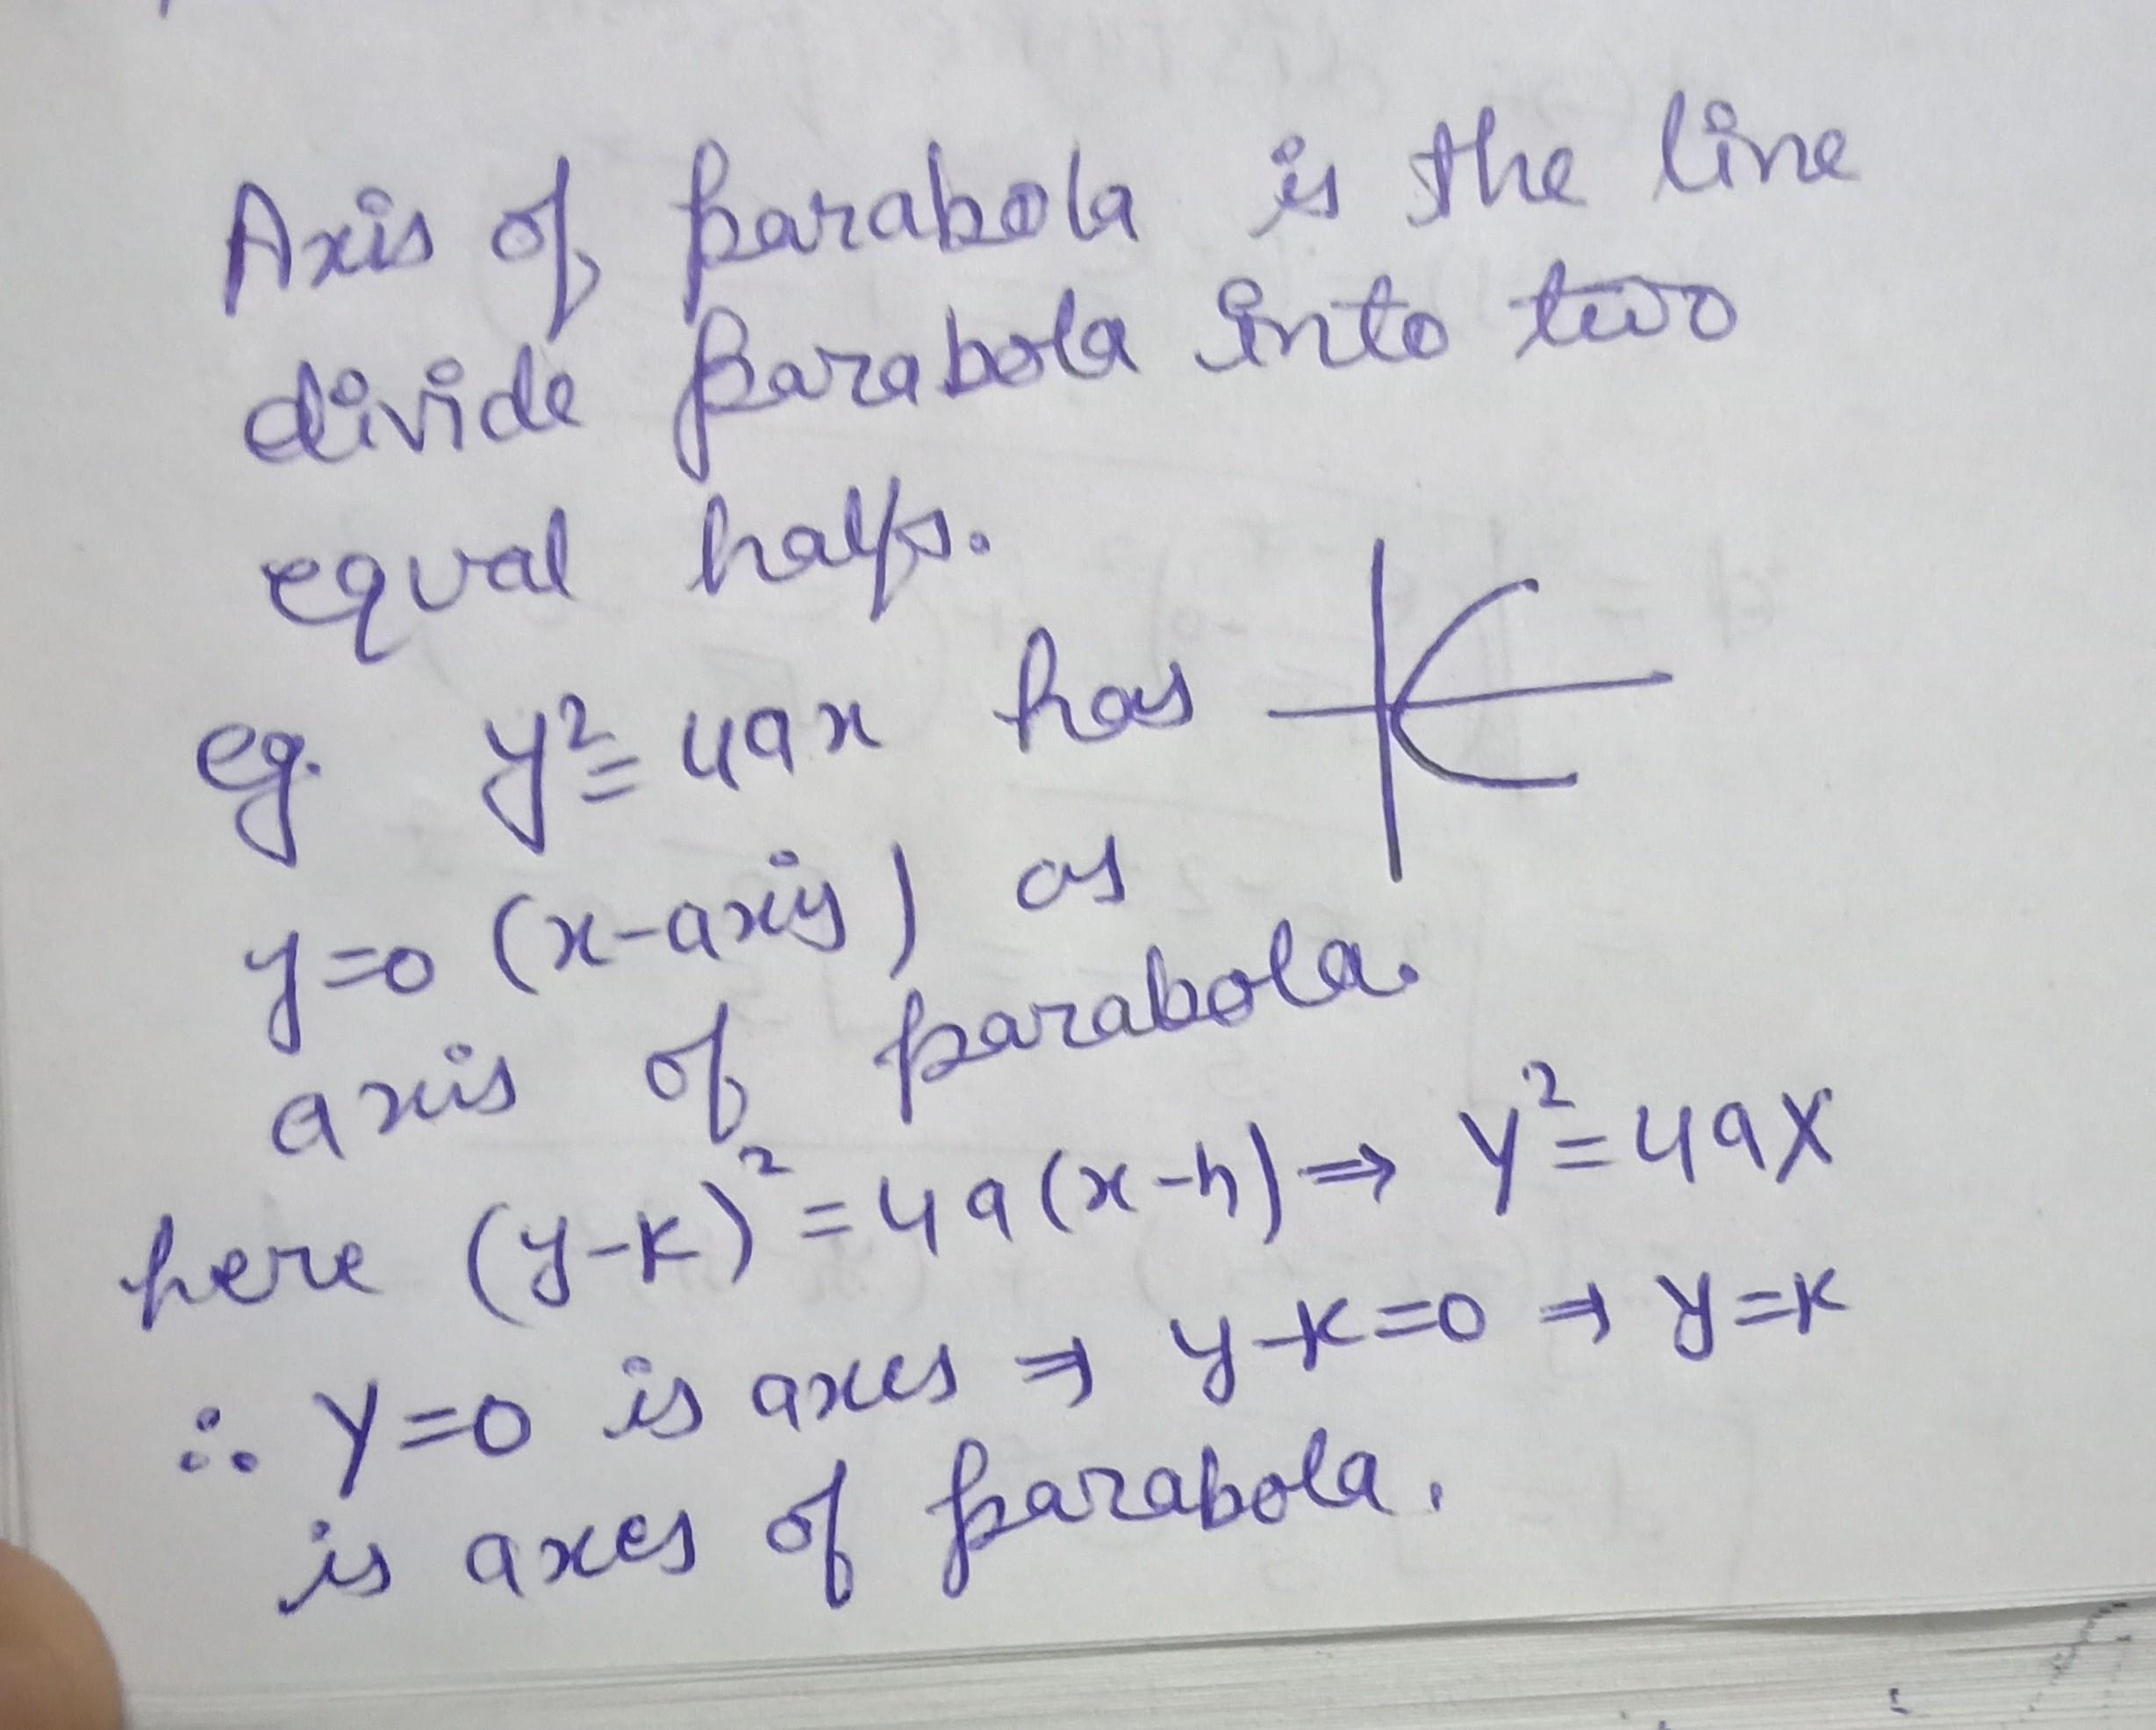 Axis of parabola is the line
divide parabola into two
equal halfs.
eg. y²=4ax has
y=0 (x-axis) as
axis of parabola.
here (y-k)²=4a(x-h)⇒ Y²=4aX
∴ Y=0 is axes ⇒ y-k=0 ⇒ y=k
is axes of parabola.